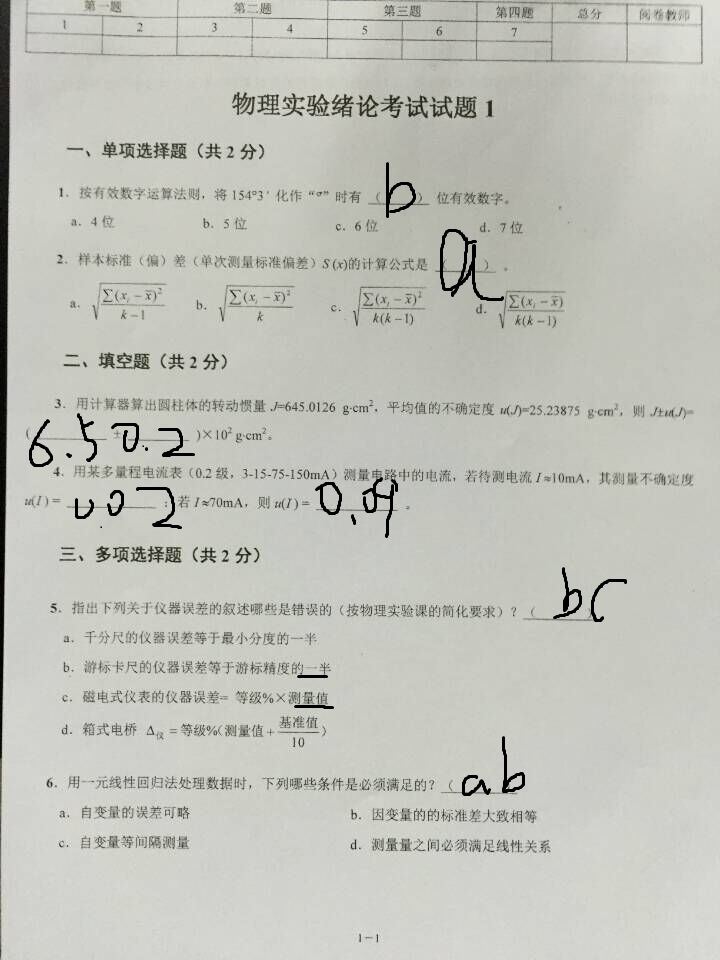 第一题 第二题 第三题 第四题 总分 阅卷教师
1 2 3 4 5 6 7
物理实验绪论考试试题 1
一、单项选择题（共 2 分）
1. 按有效数字运算法则，将 154°3′ 化作“°”时有 （ b ） 位有效数字。
a. 4 位 b. 5 位 c. 6 位 d. 7 位
2. 样本标准（偏）差（单次测量标准偏差）S (x)的计算公式是 （ a ） 。
a. √(∑(xᵢ − x̄)² / (k−1)) b. √(∑(xᵢ − x̄)² / k) c. √(∑(xᵢ − x̄)² / (k(k−1))) d. √(∑(xᵢ − x̄) / (k(k−1)))
二、填空题（共 2 分）
3. 用计算器算出圆柱体的转动惯量 J=645.0126 g·cm²，平均值的不确定度 u(J)=25.23875 g·cm²，则 J±u(J)=
( 6.5 ± 0.2 )×10² g·cm²。
4. 用某多量程电流表（0.2 级，3-15-75-150mA）测量电路中的电流，若待测电流 I≈10mA，其测量不确定度
u(I) = 0.02 ；若 I≈70mA，则 u(I) = 0.09 。
三、多项选择题（共 2 分）
5. 指出下列关于仪器误差的叙述哪些是错误的（按物理实验课的简化要求）？（ bc ）
a. 千分尺的仪器误差等于最小分度的一半
b. 游标卡尺的仪器误差等于游标精度的一半
c. 磁电式仪表的仪器误差= 等级%×测量值
d. 箱式电桥 Δ仪 = 等级%(测量值 + 基准值/10)
6. 用一元线性回归法处理数据时，下列哪些条件是必须满足的？（ ab
a. 自变量的误差可略 b. 因变量的的标准差大致相等
c. 自变量等间隔测量 d. 测量量之间必须满足线性关系
1－1